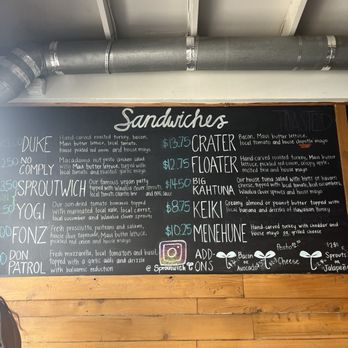 Sandwiches
DUKE Hand-carved roasted turkey, bacon,
Maui butter lettuce, local tomato,
house pickled red onion, and house mayo
NO COMPLY Macadamia nut pesto chicken salad
with Maui butter lettuce, topped with
local tomato and roasted garlic mayo
SPROUTWICH Our famous vegan patty
topped with Waialua clover sprouts,
local tomato, and
YOGI Our sun-dried tomato hummus topped
with marinated local kale, local carrot,
local cucumber and Waialua clover sprouts
FONZ Fresh prosciutto, pastrami and salami,
house olive tapenade, Maui butter lettuce,
pickled red onion and house mayo
DON PATROL Fresh mozzarella, local tomatoes and basil,
topped with a garlic aioli and drizzle
with balsamic reduction
@ Sproutwich
$13.75 CRATER Bacon, Maui butter lettuce,
local tomato and house chipotle mayo
$12.75 FLOATER Hand-carved roasted turkey, Maui
butter lettuce, local tomato, house
pickled red onion, crispy apple,
$14.50 BIG KAHUNA Our house tuna salad with hints of
cheese, topped with local tomato, local cucumbers,
Waialua clover sprouts and house mayo
$8.75 KEIKI Creamy almond or peanut butter topped with local
banana and drizzles of Hawaiian honey
$10.25 MENEHUNE Hand-carved turkey with cheddar and
house mayo or grilled cheese
ADD-ONS
Bacon or Avocado
Pesto
Cheese
Sprouts or Jalapeño